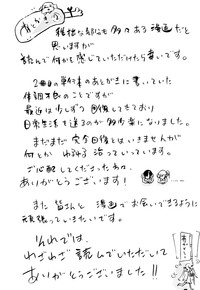 あとがき
な部分も多々ある漫画だと
思いますが
読んで何かを感じていただけたら幸いです。
の単行本のあとがきに書いていた
体調不良のことですが
最近は少しずつ回復してきており
日常生活を送るのが多少楽になりました。
まだまだ完全回復とはいきませんが
何とか ゆるゆる 治っていっています。
ご心配してくださった方々
ありがとうございます!
また 皆さんと 漫画で お会いできるように
頑張っていきたいです。
それでは、
わざわざ読んでいただいて
ありがとうございました!!